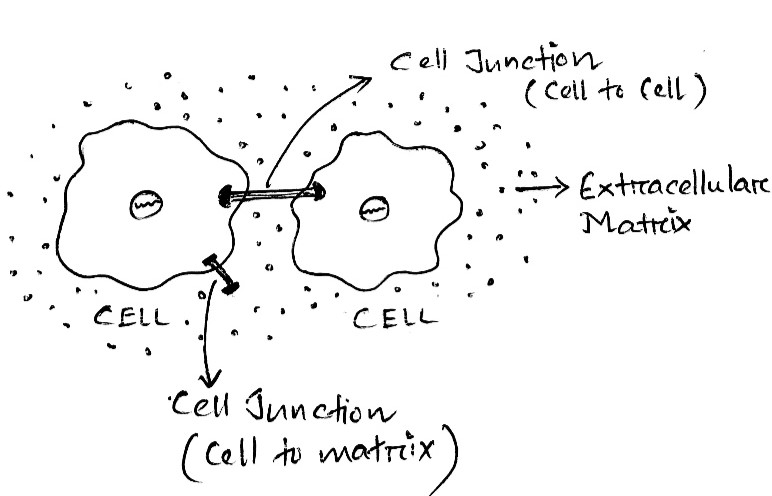 Cell Junction
(Cell to Cell)
Extracellulare
Matrix
CELL
CELL
Cell Junction
(Cell to matrix)